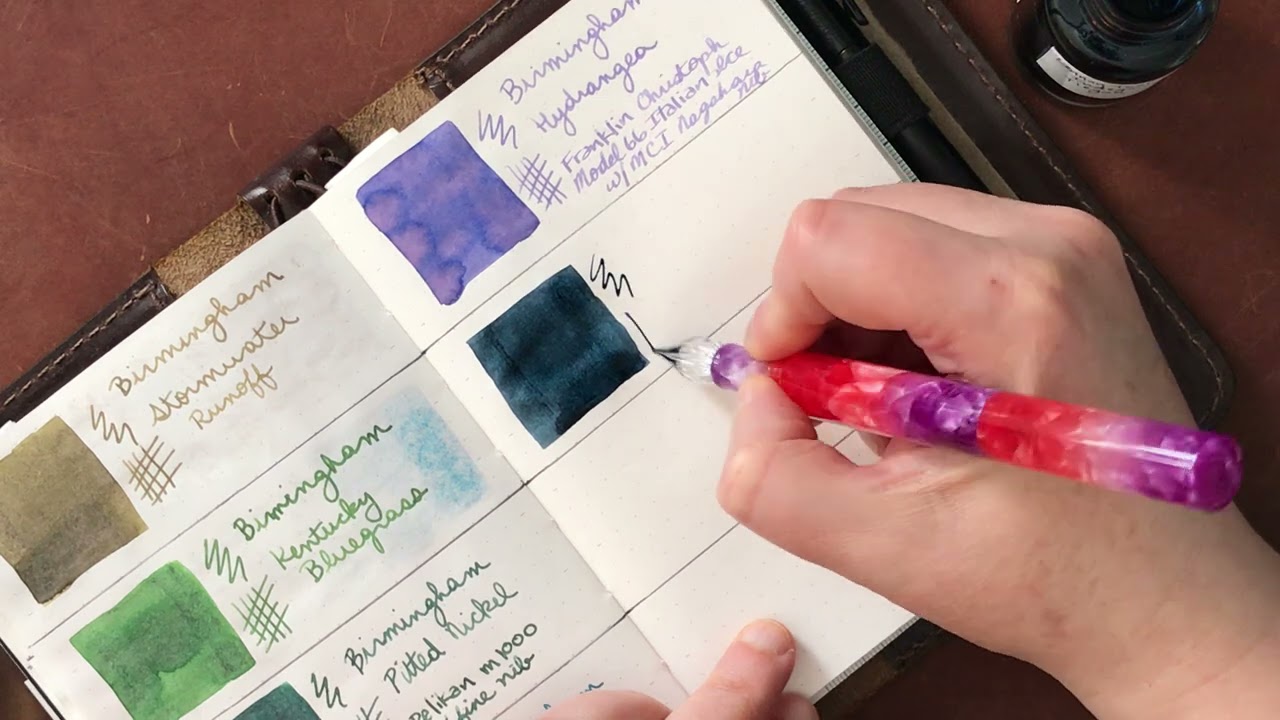 Birmingham
Stormwater
Runoff
Birmingham
Kentucky
Bluegrass
Birmingham
Pitted Nickel
Pelikan m1000
fine nib
Birmingham
Hydrangea
Franklin Christoph
Model 66 Italian Ice
w/ MCI Nagahara
nib